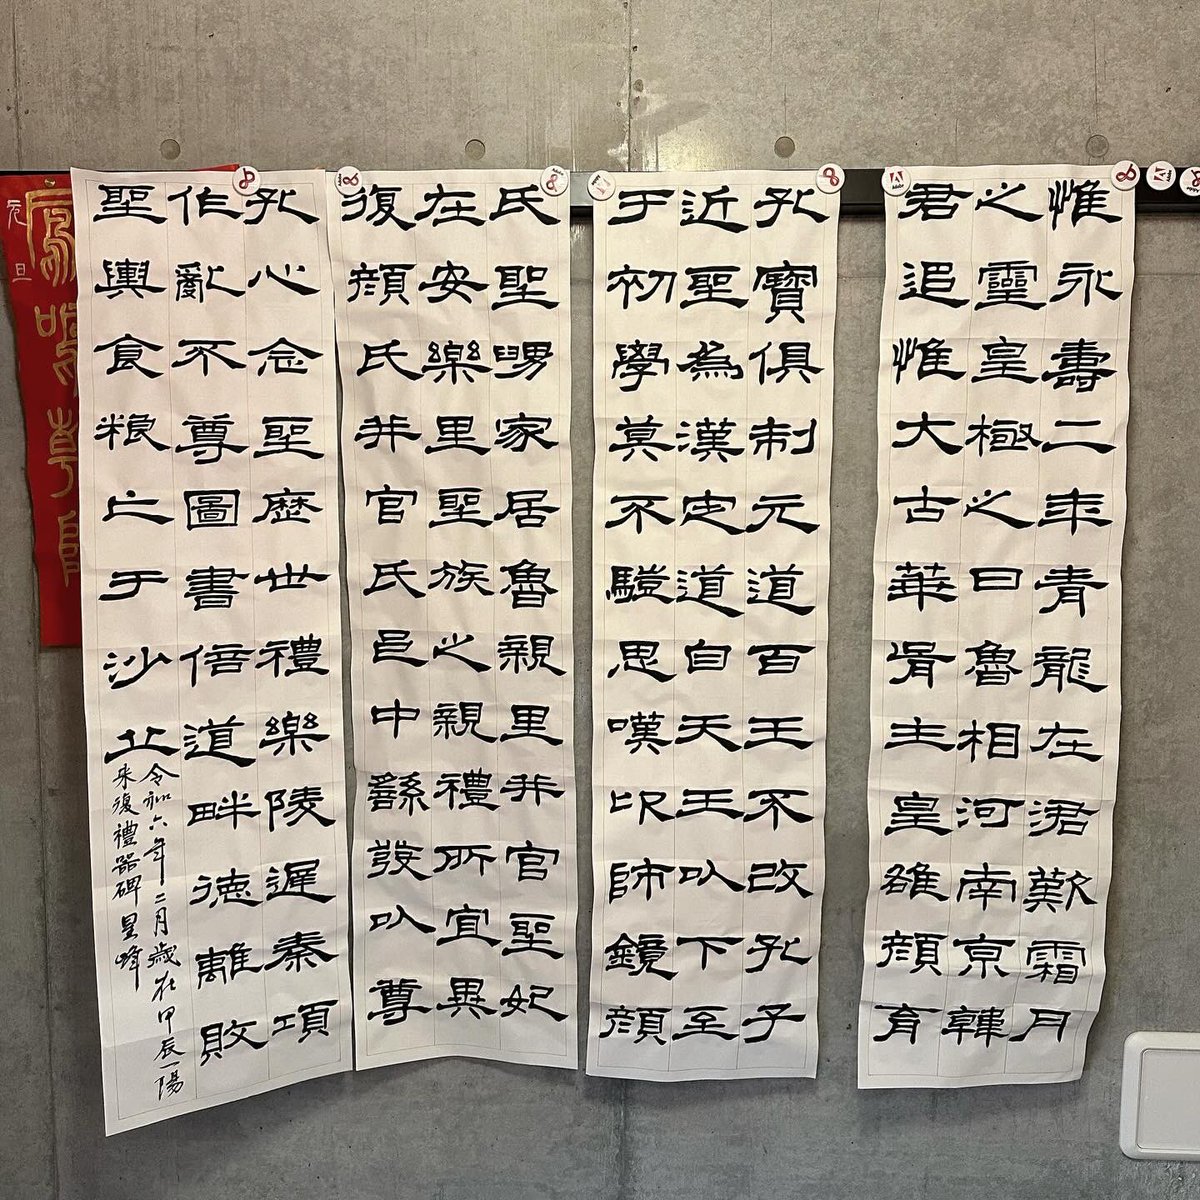 惟永壽二年青龍在涒歎霜月
之靈皇極之日魯相河南京韓
君追惟大古華胥生皇雄顏育
孔寶俱制元道百王不改孔子
近聖為漢定道自天王以下至
于初學莫不驥思嘆卬師鏡顏
氏聖舅家居魯親里并官聖妃
在安樂里聖族之親禮所宜異
復顏氏并官氏邑中繇發以尊
孔心念聖歷世禮樂陵遲秦項
作亂不尊圖書倍道畔德離敗
聖輿食粮亡于沙丘
令和六年二月歲在甲辰一陽
来復禮器碑 星峰
元旦
Adobe